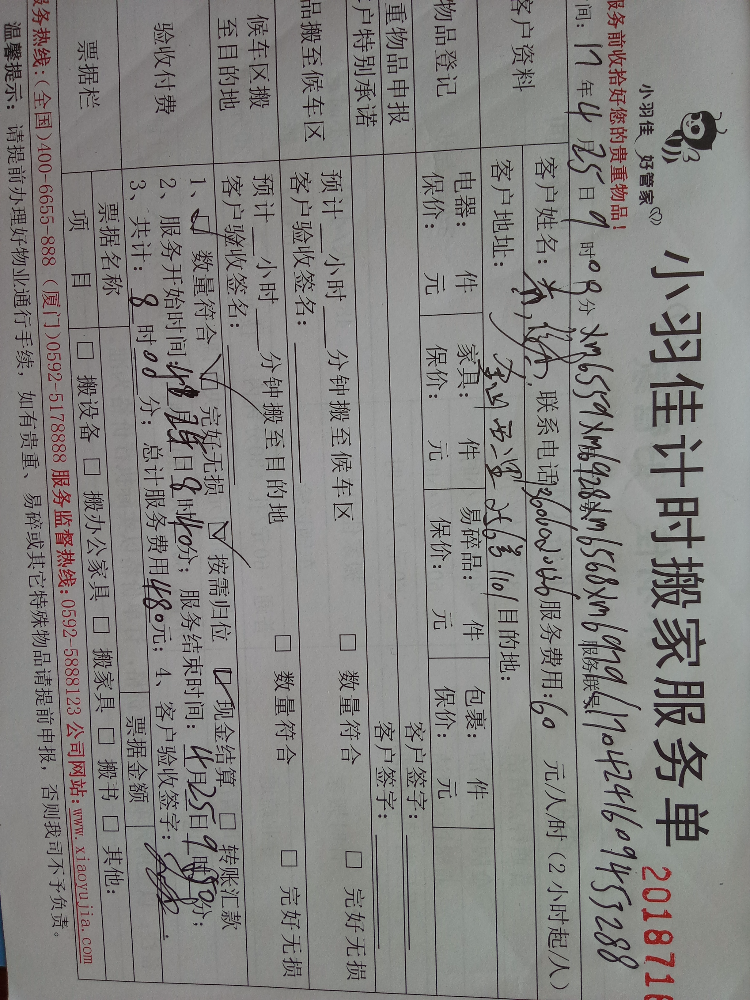 小羽佳 好管家
小羽佳计时搬家服务单
2018718
服务前收拾好您的贵重物品！
间: 17 年 4 月 25 日 9 时 00 分 xm6559 xm6928 xm6568 xm6929 服务联号: 170424160945 3288
客户资料
客户姓名: 联系电话: 服务费用: 60 元/人/时 (2小时起/人)
客户地址: 号 101 目的地:
物品登记
电器: 件 家具: 件 易碎品: 件 包裹: 件
保价: 元 保价: 元 保价: 元 保价: 元
重物品申报 客户签字:
户特别承诺 客户签字:
品搬至候车区
预计 小时 分钟搬至候车区 □ 数量符合 □ 完好无损
客户验收签名:
候车区搬至目的地
预计 小时 分钟搬至目的地 □ 数量符合 □ 完好无损
客户验收签名:
验收付费
1、 数量符合 完好无损 按需归位 现金结算 □ 转账汇款
2、服务开始时间: 日 8 时 40 分; 服务结束时间: 4 月 25 日 9 时 分;
3、共计: 8 时 00 分; 总计服务费用 480 元; 4、客户验收签字:
票据栏
票据名称 票据金额
项 目 □ 搬设备 □ 搬办公家具 □ 搬家具 □ 搬书 □ 其他:
服务热线: (全国)400-6655-888 (厦门)0592-5178888 服务监督热线: 0592-5888123 公司网站: www.xiaoyujia.com
温馨提示: 请提前办理好物业通行手续, 如有贵重、易碎或其它特殊物品请提前申报, 否则我司不予负责。